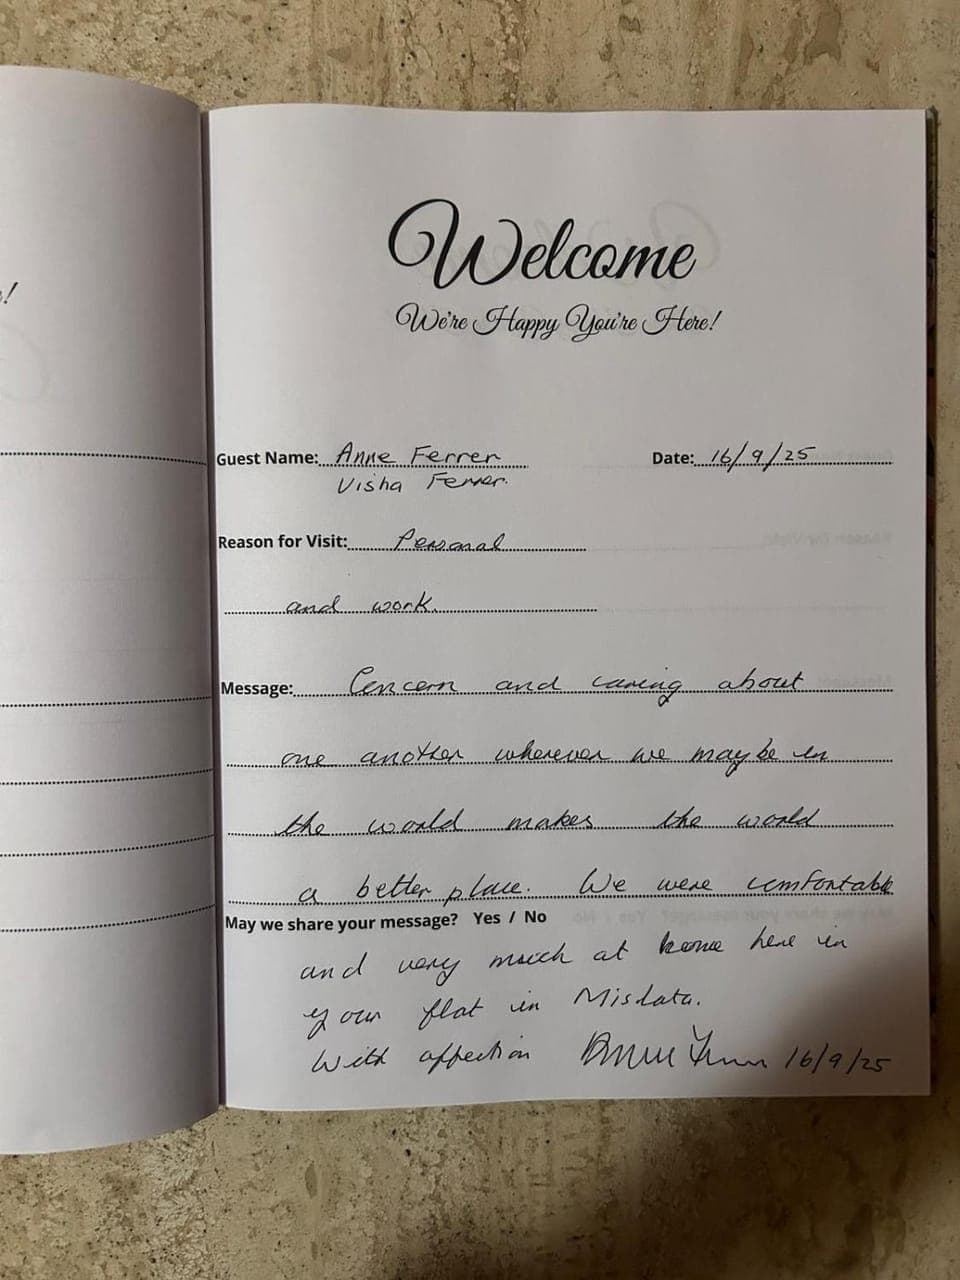 !
Welcome
We're Happy You're Here!
Guest Name: Anne Ferrer Date: 16/9/25
Visha Ferrer.
Reason for Visit: Personal
and work.
Message: Concern and caring about
one another wherever we maybe in
the world makes the world
a better place. We were comfortable
May we share your message? Yes / No
and very much at home here in
your flat in Mislata.
With affection Anne Ferrer 16/9/25